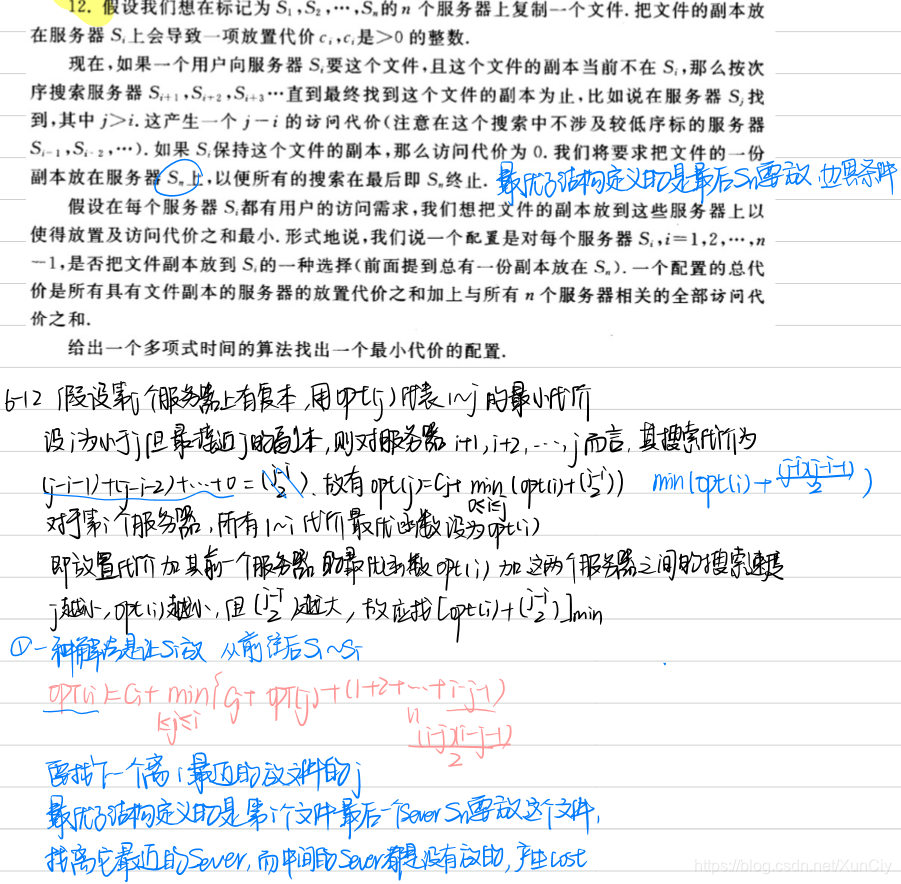 12. 假设我们想在标记为 S₁,S₂,⋯,Sₙ的 n 个服务器上复制一个文件. 把文件的副本放
在服务器 Sᵢ上会导致一项放置代价 cᵢ,cᵢ是>0 的整数.
现在,如果一个用户向服务器 Sᵢ要这个文件,且这个文件的副本当前不在 Sᵢ,那么按次
序搜索服务器 Sᵢ₊₁,Sᵢ₊₂,Sᵢ₊₃⋯直到最终找到这个文件的副本为止,比如说在服务器 Sⱼ找
到,其中 j>i. 这产生一个 j−i 的访问代价(注意在这个搜索中不涉及较低序标的服务器
Sᵢ₋₁,Sᵢ₋₂,⋯). 如果 Sᵢ保持这个文件的副本,那么访问代价为 0. 我们将要求把文件的一份
副本放在服务器 Sₙ上,以便所有的搜索在最后即 Sₙ终止.
最优子结构定义的是最后Sn要放 边界条件
假设在每个服务器 Sᵢ都有用户的访问需求,我们想把文件的副本放到这些服务器上以
使得放置及访问代价之和最小. 形式地说,我们说一个配置是对每个服务器 Sᵢ,i=1,2,⋯,n
−1,是否把文件副本放到 Sᵢ的一种选择(前面提到总有一份副本放在 Sₙ). 一个配置的总代
价是所有具有文件副本的服务器的放置代价之和加上与所有 n 个服务器相关的全部访问代
价之和.
给出一个多项式时间的算法找出一个最小代价的配置.
6-12 假设第j个服务器上有复本,用opt(j)代表1~j的最小代价
设i为小于j但最接近j的副本,则对服务器 i+1,i+2,⋯,j而言,其搜索代价为
(j-i-1)+(j-i-2)+⋯+0=(j-i 2). 故有opt(j)=Cj+min 0≤i≤j (opt(i)+(j-i 2)) min(opt(i)+(j-i)(j-i-1)/2)
对于第i个服务器,所有1~i代价最优函数设为opt(i)
即放置代价加其前一个服务器的最优函数opt(i)加这两个服务器之间的搜索速度
j越小,opt(i)越小,但(j-i 2)越大,故应找[opt(i)+(j-i 2)]min
①一种解法是让Si放 从前往后S1~Si
opt(i)=Ci+min 1≤j≤i {Cj+opt(j)+(1+2+⋯+i-j-1)
(i-j)(i-j-1)/2
要找一个离i最近的放文件的j
最优子结构定义的是第i个文件最后一个Sever Sn要放这个文件,
找离它最近的Sever,而中间的Sever都是没有放的,产生cost
https://blog.csdn.net/XunCiy